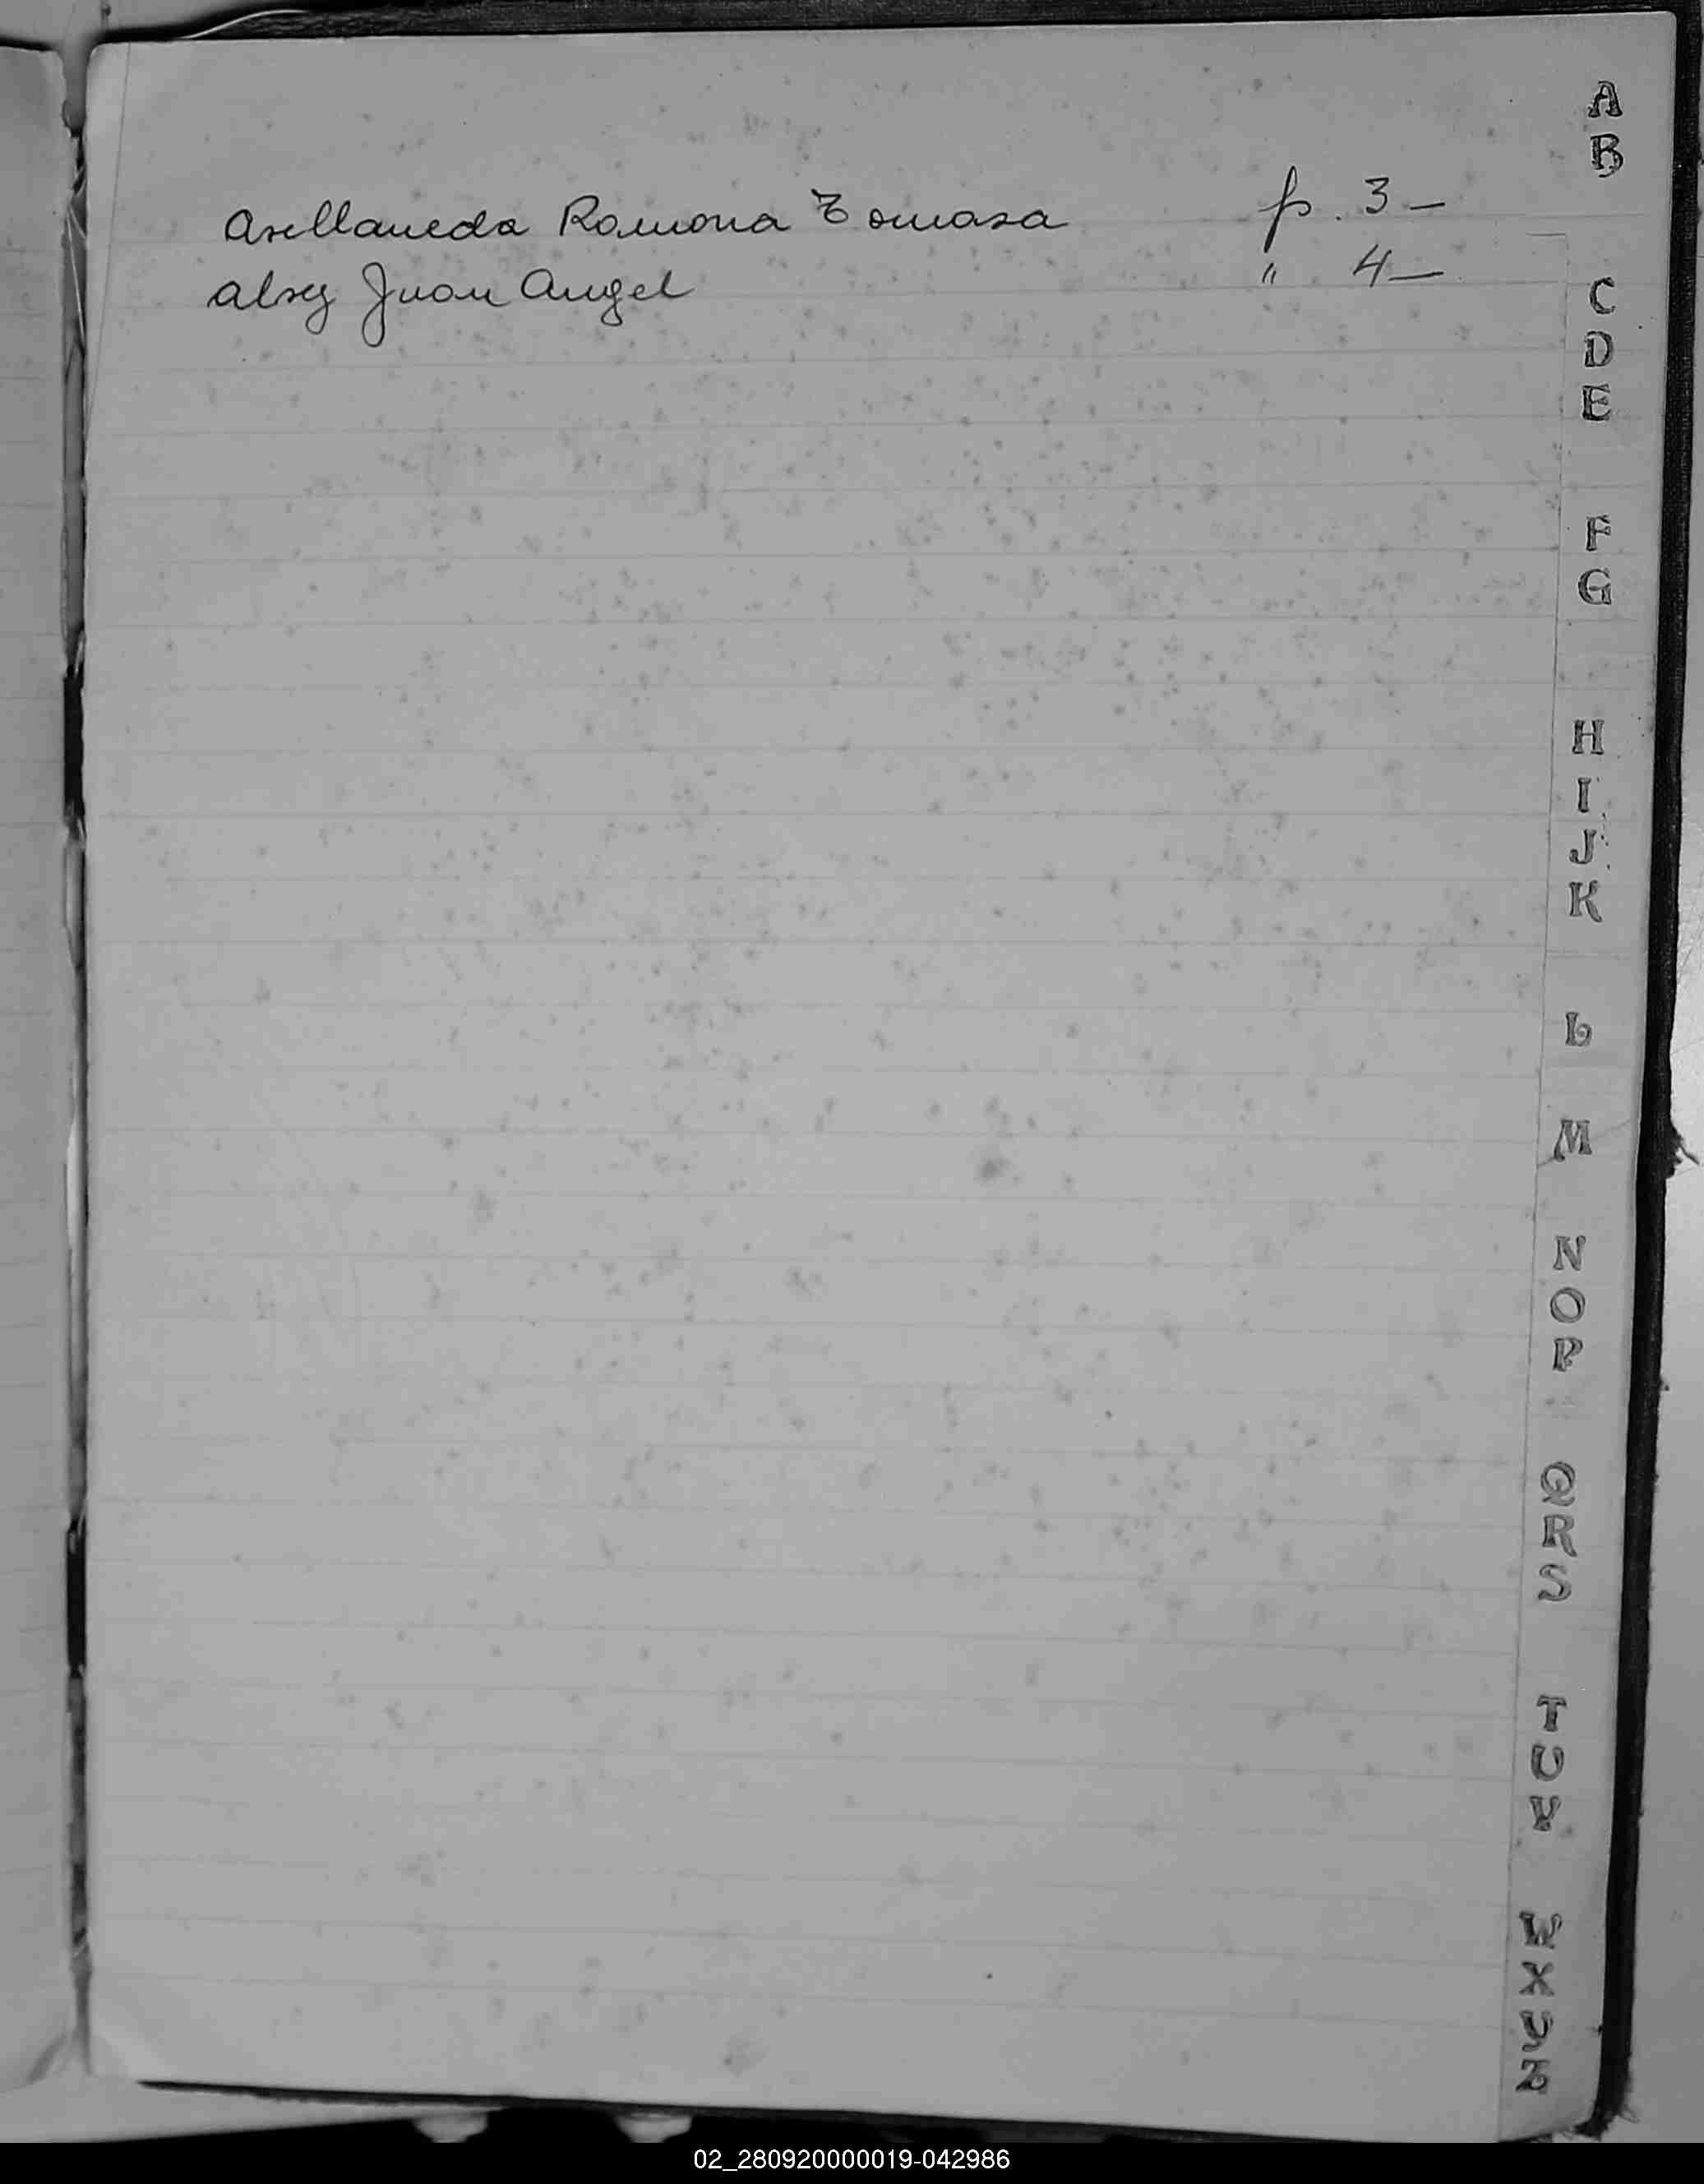 Avellaneda Ramona Tomasa p. 3 —
Juan Angel " 4 —
A
B
C
D
E
F
G
H
I
J
K
L
M
N
O
P
Q
R
S
T
U
V
W
X
Y
Z
02_280920000019-042986